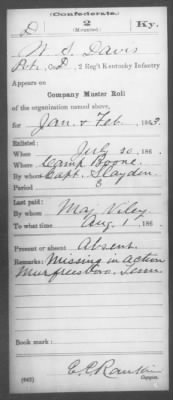 (Confederate.)
D 2 Ky.
(Mounted.)
W. S. Davis
Pvt., Co. D, 2 Reg't Kentucky Infantry
Appears on
Company Muster Roll
of the organization named above,
for Jan & Feb, 1863.
Enlisted:
When July 20, 186 .
Where Camp Boone.
By whom Capt. Slayden.
Period 3
Last paid:
By whom Maj Viley
To what time Aug 1, 186 .
Present or absent Absent.
Remarks: Missing in action
Murfreesboro. Tenn.
Book mark:
(642) Copyist.